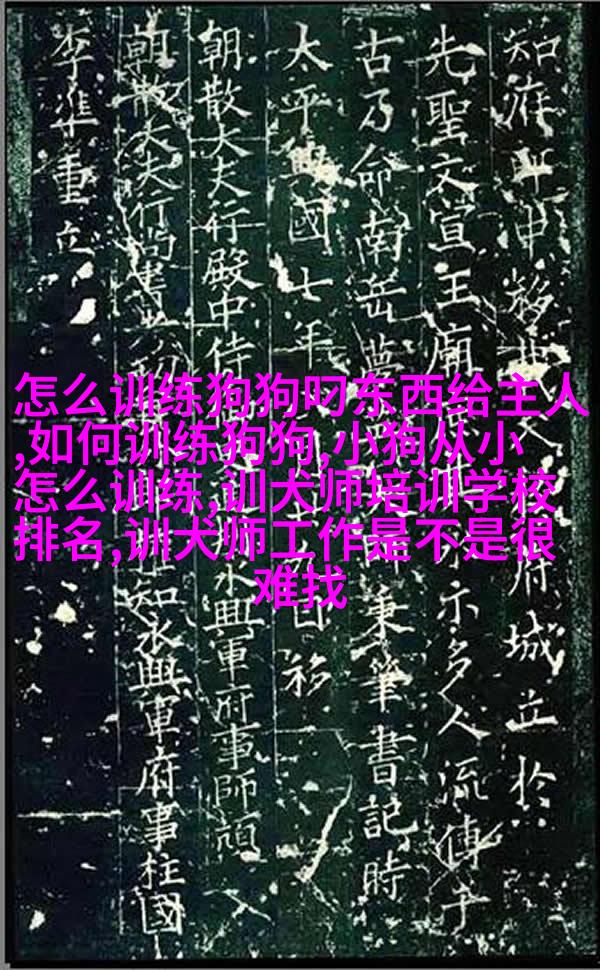 怎么训练狗狗叼东西给主人
,如何训练狗狗,小狗从小
怎么训练,训犬师培训学校
排名,训犬师工作是不是很
难找
知 移 府城立於
先聖文宣王廟 示多人流傳千
古乃命南岳夢 秉筆書記時
太平興國七年 日移
朝散大夫行殿中侍 永興軍府事師頏
朝散大夫行尚書 知永興軍府事柱國
李準重立